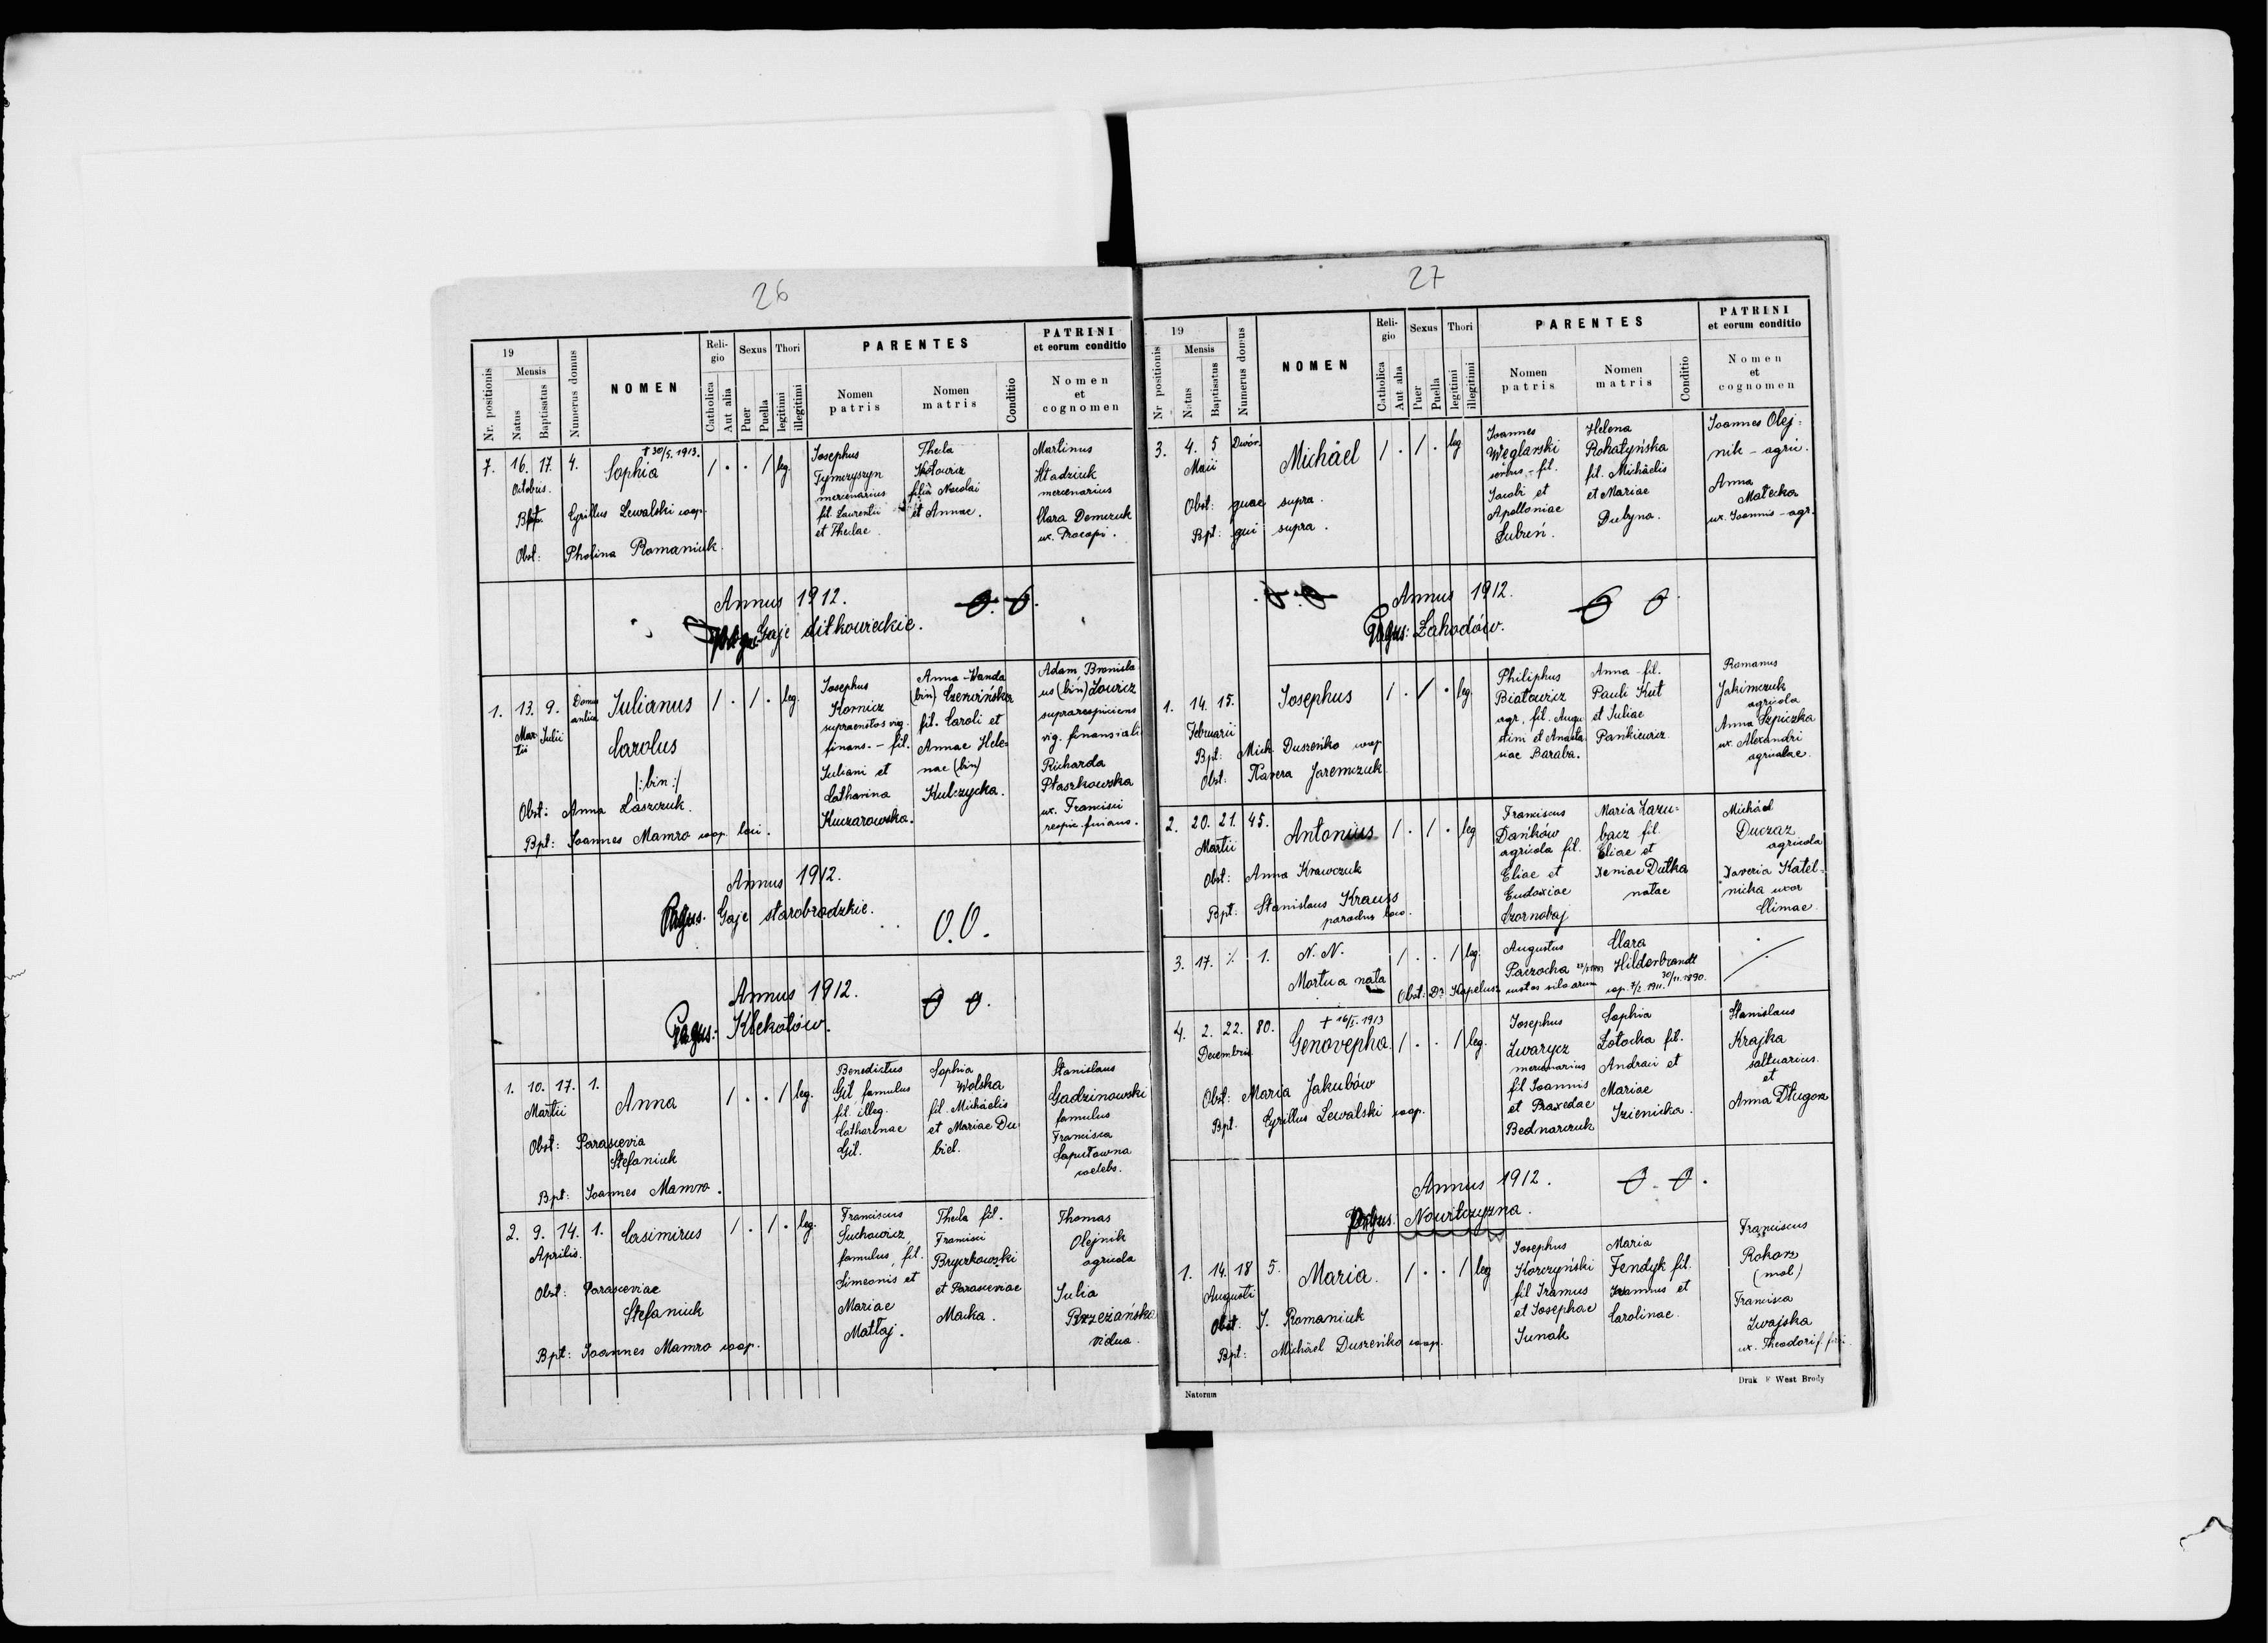 26
19
Mensis
Nr. positionis
Natus
Baptisatus
Numerus domus
NOMEN
Reli-
gio
Catholica
Aut alia
Sexus
Puer
Puella
Thori
legitimi
illegitimi
PARENTES
Nomen
patris
Nomen
matris
Conditio
PATRINI
et eorum conditio
Nomen
et
cognomen
7. 16. 17. 4.
Octobris.
† 30/5. 1913.
Sophia
1 . . 1 leg
Josephus
Tymczyszyn
mercenarius
fil. Laurentii
et Theclae
Thecla
Kotowicz
filia Nicolai
et Annae.
Martinus
Hładziuk
mercenarius
Clara Demczuk
ux. Procopi.
Bpt. Cyrillus Lewalski coop.
Obst: Photina Romaniuk.
Annus 1912.
Gaje ditkowieckie.
1. 13. 9.
Mar-
tii
Julii
Domus
Julianus
Carolus
/:bin:/
1 . 1 . leg.
Josephus
Kornicz
vig.
finans. - fil.
Juliani et
Catharina
Kuczarowska.
Anna - Wanda
(bin) Czerwińska
fil. Caroli et
Annae Hele-
nae (bin)
Kulczycka.
Adam, Bronisla
us (bin) Łowicz
suprarespiciens
vig. finansiali
Richarda
Ptaszkowska
ux. Francisci
respic. finans.
Obst: Anna Łaszczuk.
Bpt: Joannes Mamro coop. loci.
Annus 1912.
Pagus. Gaje starobrodzkie.
0.0.
Annus 1912.
Pagus: Klekotów.
1. 10. 17. 1.
Martii
Anna
1 . . 1 leg.
Benedictus
Gil, famulus
fil. illeg.
Catharinae
Gil.
Sophia
Wolska
fil. Michaelis
et Mariae Du-
biel.
Stanislaus
Gadzinowski
famulus
Francisca
Caputowna
coelebs.
Obst: Parascevia
Stefaniuk
Bpt: Joannes Mamro.
2. 9. 14. 1.
Aprilis.
Casimirus
1 . 1 . leg.
Franciscus
Suchowicz,
famulus, fil.
Simeonis et
Mariae
Matłaj.
Thecla fil.
Francisci
Bryczkowski
et Parasceviae
Macka.
Thomas
Olejnik
agricola
Julia
Brzeżańska
vidua
Obst: Parasceviae
Stefaniuk
Bpt: Joannes Mamro coop.
27
19
Mensis
Nr positionis
Natus
Baptisatus
Numerus domus
NOMEN
Reli-
gio
Catholica
Aut alia
Sexus
Puer
Puella
Thori
legitimi
illegitimi
PARENTES
Nomen
patris
Nomen
matris
Conditio
PATRINI
et eorum conditio
Nomen
et
cognomen
3. 4. 5 Dwór.
Maii
Michäel
1 . 1 . leg
Joannes
Węglarski
fil.
Jacobi et
Apolloniae
Łubień.
Helena
Rohatyńska
fil. Michäelis
et Mariae
Dubyna.
Joannes Olej-
nik - agric.
Anna
Małecka
ux. Joannis - agr.
Obst: quae supra.
Bpt: qui supra.
Annus 1912.
Pagus: Łahodów.
1. 14. 15.
Februarii
Josephus
1 . 1 . leg
Philiphus
Białowicz
agr., fil. Augu
stini et Anasta
siae Baraba.
Anna - fil.
Pauli Kut
et Juliae
Pankiewicz
Romanus
Jakimczuk
agricola
Anna Szpiczka
ux. Alexandri
agricolae.
Bpt: Mich. Duszeńko coop
Obst: Xavera Jaremczuk
2. 20. 21. 45.
Martii
Antonius
1 . 1 . leg
Franciscus
Dańków
agricola fil.
Eliae et
Eudoxiae
Czornobaj
Maria Łazu-
bacz fil.
Eliae et
Xeniae Dutka
natae
Michäel
Duczaz
agricola
Xaveria Katel-
nicka uxor
Climae.
Obst: Anna Krawczuk
Bpt: Stanislaus Krauss
parochus loco.
3. 17. 1.
N. N.
Mortua nata
1 . . 1 leg.
Augustus
Paczocha
custos silvarum
Clara
Hilderbrandt
30/11. 1890.
cop. 7/2. 1911.
Obst: Dr. Kapelusz
4. 2. 22. 80.
Decembris
† 16/5. 1913
Genovepha
1 . . 1 leg.
Josephus
Zwarycz
mercenarius
fil Joannis
et Praxedae
Bednarczuk
Sophia
Łotocka fil.
Andraei et
Mariae
Izienicka.
Stanislaus
Krajka
saltuarius.
et
Anna Długosz
Obst: Maria Jakubów
Bpt. Cyrillus Lewalski coop.
Annus 1912.
Pagus: Nowiczyzna.
1. 14. 18 5.
Augusti
Maria.
1 . . 1 leg
Josephus
Korczyński
fil
et Josephae
Junak
Maria
Fendyk fil.
Joannis et
Carolinae.
Franciscus
Rokosz
(mol)
Francisca
Zwajska
ux. Theodori
Obst. J. Romaniuk
Bpt: Michäel Duszeńko coop.
Natorum
Druk F West Brody